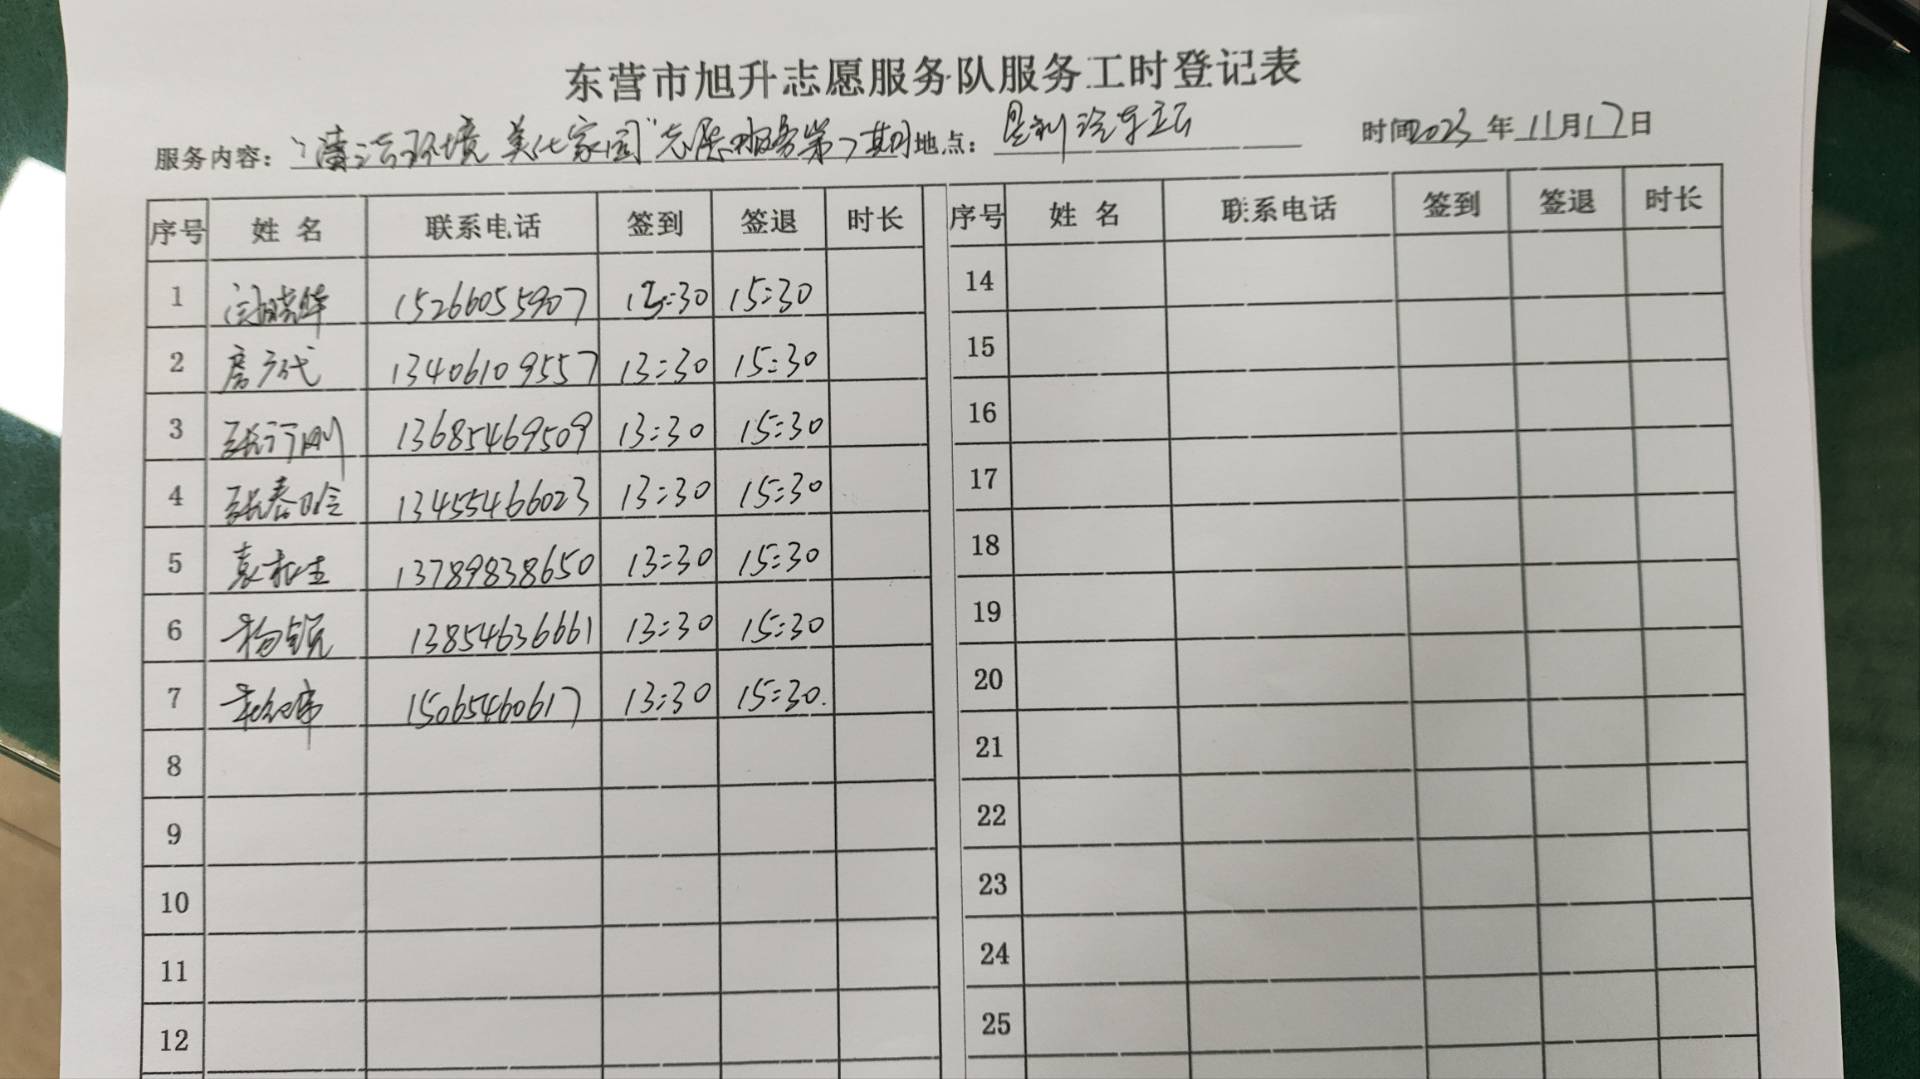 东营市旭升志愿服务队服务工时登记表
服务内容："清洁环境 美化家园"志愿服务第7期 地点：垦利汽车站 时间2023年11月17日
序号 姓名 联系电话 签到 签退 时长 序号 姓名 联系电话 签到 签退 时长
1 15266055907 13:30 15:30 14
2 13406109557 13:30 15:30 15
3 张行刚 13685469509 13:30 15:30 16
4 张春晗 13455466023 13:30 15:30 17
5 13789838650 13:30 15:30 18
6 杨锐 13854636661 13:30 15:30 19
7 15065460617 13:30 15:30. 20
8 21
9 22
10 23
11 24
12 25